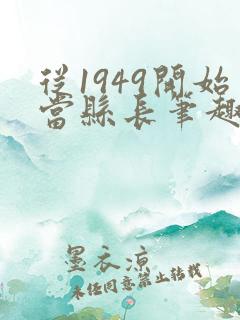 從1949開始
當縣長筆趣
墨衣涼
未经同意禁止转载